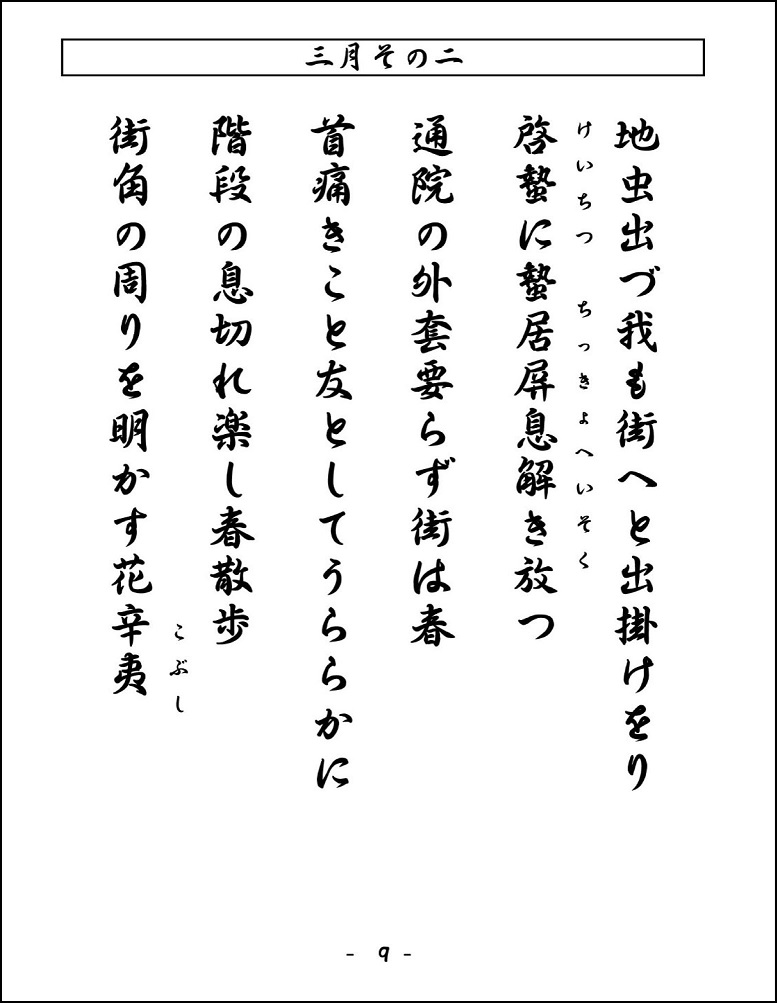 三月その二
地虫出づ我も街へと出掛けをり
けいちつ ちっきょへいそく
啓蟄に蟄居屏息解き放つ
通院の外套要らず街は春
首痛きこと友としてうららかに
階段の息切れ楽し春散歩
こぶし
街角の周りを明かす花辛夷
- 9 -